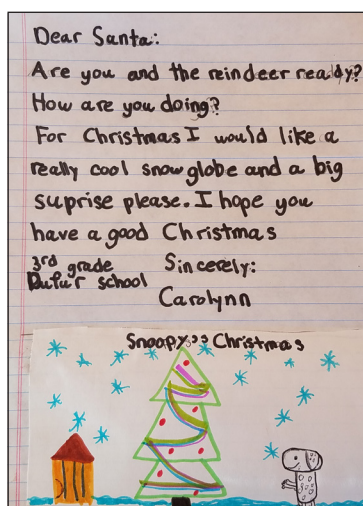 Dear Santa:
Are you and the reindeer ready?
How are you doing?
For Christmas I would like a
really cool snow globe and a big
suprise please. I hope you
have a good Christmas
3rd grade Sincerely:
Dufur school
Carolynn
Snoopy,, Christmas